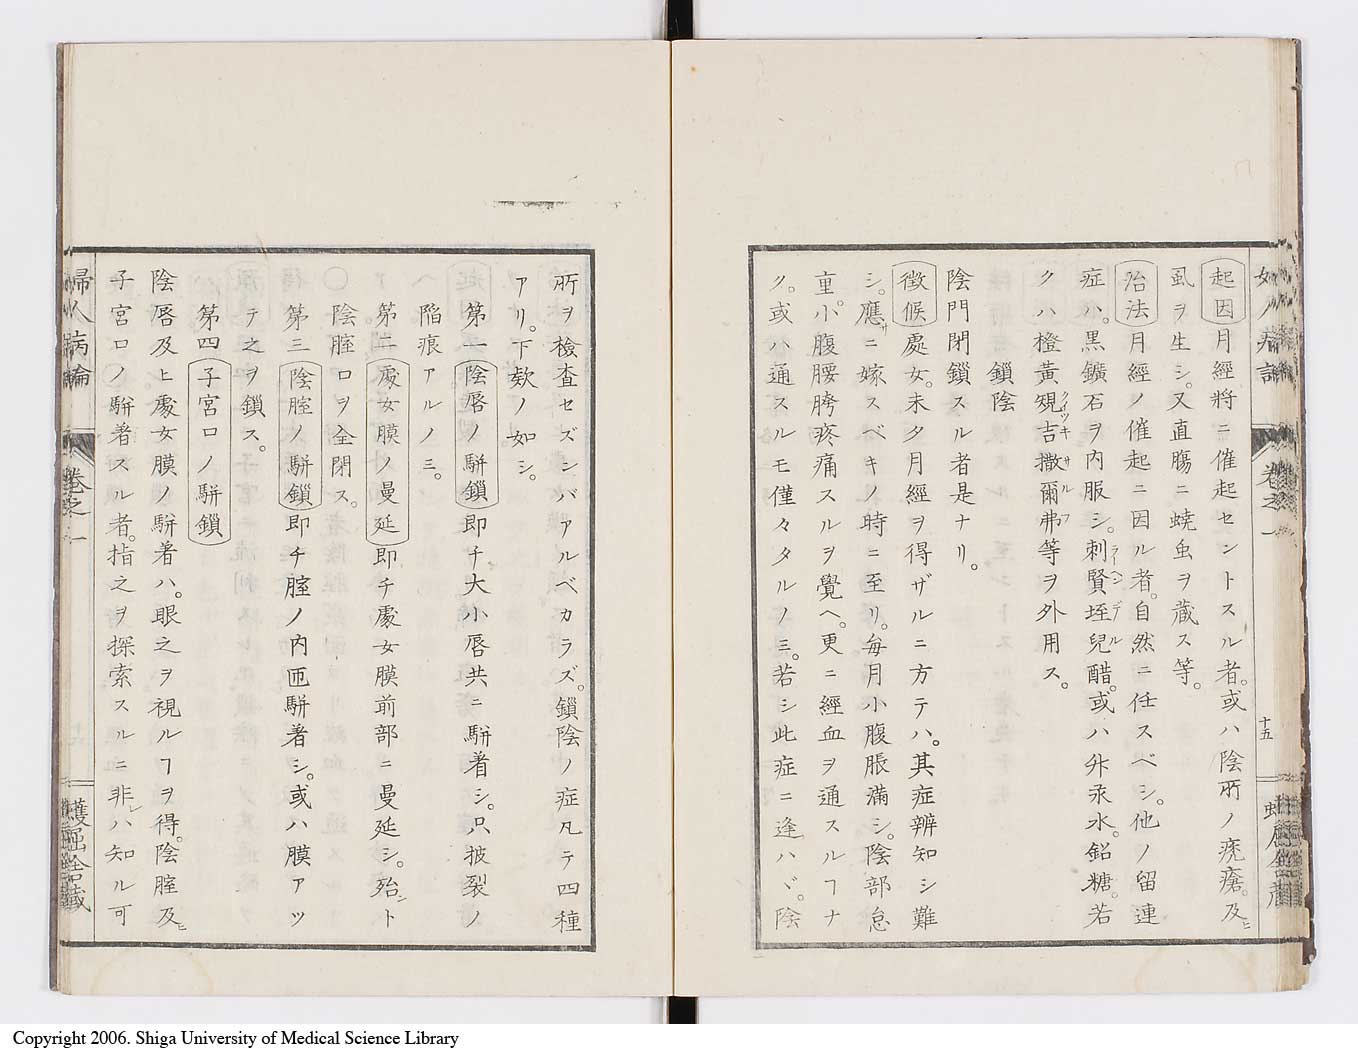 起因月經將ニ催起セントスル者。或ハ陰所ノ痒瘡。及ヒ
虱ヲ生シ。又直腸ニ蟯虫ヲ蔵ス等。
治法月經ノ催起ニ因ル者。自然ニ任スベシ。他ノ留連
症ハ。黒鑛石ヲ内服シ。刺賢垤兒醋。或ハ升汞水。鉛糖。若
ラーヘンデル
クハ橙黃規吉撒爾弗等ヲ外用ス。
クイツキサルフ
鎖陰
陰門閉鎖スル者是ナリ。
徴候處女。未タ月經ヲ得ザルニ方テハ。其症辨知シ難
シ。應サニ嫁スベキノ時ニ至リ。毎月小腹脹滿シ。陰部怠
重。小腹腰胯疼痛スルヲ覺ヘ。更ニ經血ヲ通スルヿナ
ク。或ハ通スルモ僅々タルノミ。若シ此症ニ逢ハヾ。陰
卷之一
十五
所ヲ檢査セズンバアルベカラズ。鎖陰ノ症凡テ四種
アリ。下欵ノ如シ。
第一陰唇ノ駢鎖即チ大小唇共ニ駢着シ。只披裂ノ
陷痕アルノミ。
第二處女膜ノ曼延即チ處女膜前部ニ曼延シ。殆ント
陰腟口ヲ全閉ス。
第三陰腟ノ駢鎖即チ腟ノ内匝駢着シ。或ハ膜アツ
テ之ヲ鎖ス。
第四子宮口ノ駢鎖
陰唇及ヒ處女膜ノ駢着ハ。眼之ヲ視ルヿヲ得。陰腟及ヒ
子宮口ノ駢着スル者。指之ヲ探索スルニ非レハ知ル可
婦人病論
卷之一
Copyright 2006. Shiga University of Medical Science Library